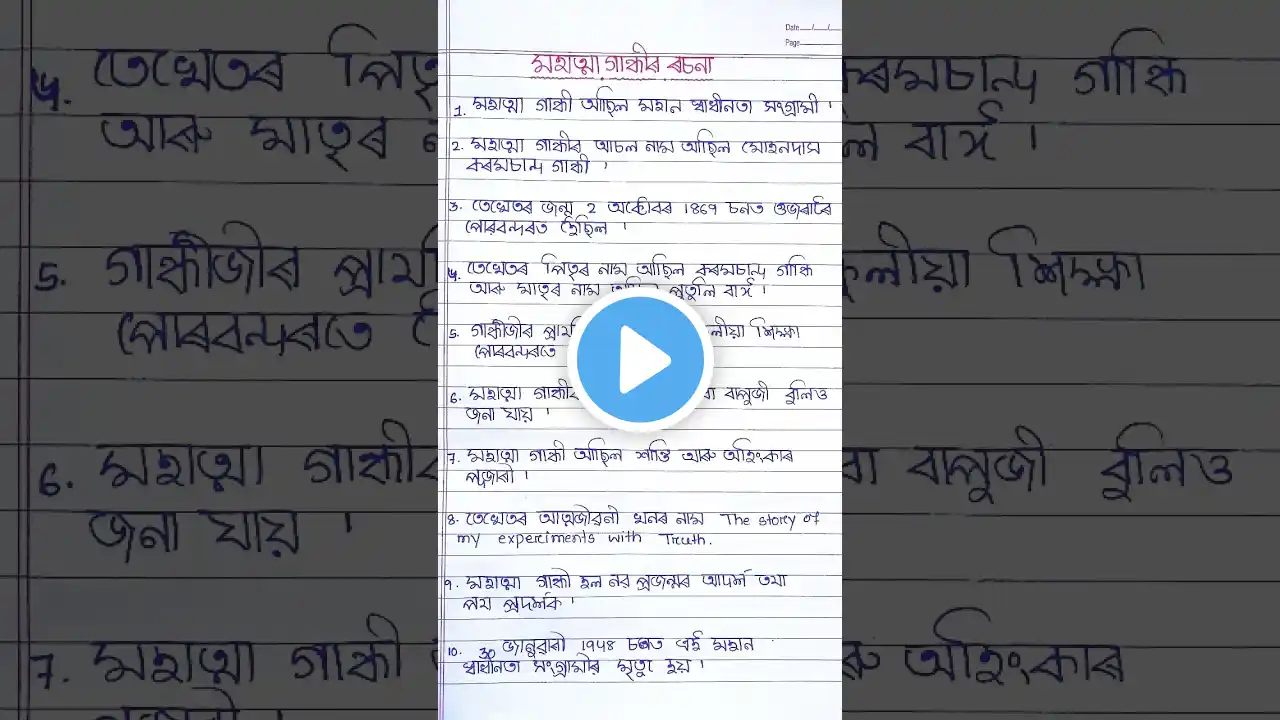 Date
Page
মহাত্মা গান্ধীৰ ৰচনা
1. মহাত্মা গান্ধী আছিল মহান স্বাধীনতা সংগ্ৰামী।
2. মহাত্মা গান্ধীৰ আচল নাম আছিল মোহনদাস
কৰমচান্দ গান্ধী।
3. তেখেতৰ জন্ম 2 অক্টোবৰ 1869 চনত গুজৰাটৰ
পোৰবন্দৰত হৈছিল।
4. তেখেতৰ পিতৃৰ নাম আছিল কৰমচান্দ গান্ধি
আৰু মাতৃৰ নাম পুতুলি বাঈ।
5. গান্ধীজীৰ লীয়া শিক্ষা
পোৰবন্দৰতে
6. মহাত্মা বাপুজী বুলিও
জনা যায়।
7. মহাত্মা গান্ধী আছিল শান্তি আৰু অহিংকাৰ
পূজাৰী।
8. তেখেতৰ আত্মজীৱনী খনৰ নাম The story of
my experiments with Truth.
9. মহাত্মা গান্ধী হ'ল নৱ প্ৰজন্মৰ আদৰ্শ তথা
পথ প্ৰদৰ্শক।
10. 30 জানুৱাৰী 1948 চনত এই মহান
স্বাধীনতা সংগ্ৰামীৰ মৃত্যু হয়।